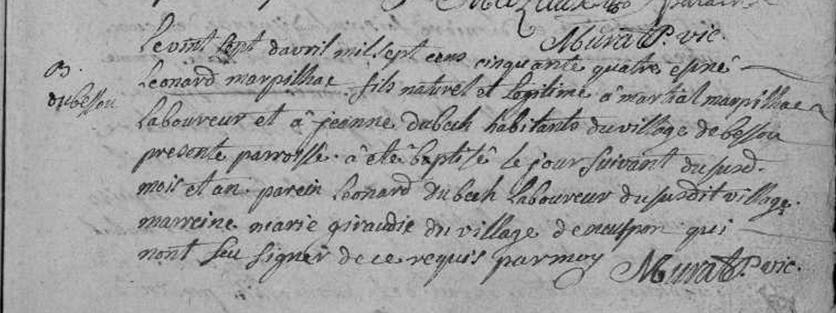 Murat P. vic.
Le vint sept davril mil sept cens cinquante quatre est né
B. Leonard marpilhac fils naturel et legitime â martial marpilhac
dubessou
Laboureur et â jeanne dubech habitants du village de bessou
presente parroisse â étê baptisê le jour suivant du susd.
mois et an. parein Leonard dubech Laboureur du susdit village.
marreine marie giraudie du village de qui
nont seu signer de ce requis par moy Murat P. vic.